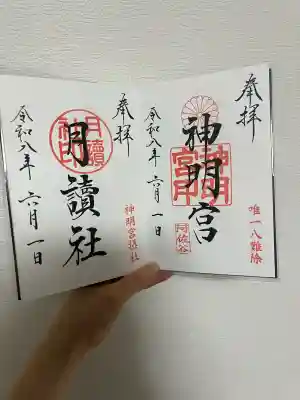 奉拝
神明宮
神明宮印
唯一八難除
阿佐谷
令和八年 六月 一日
奉拝
月讀社
月讀社印
神明宮摂社
令和八年 六月 一日